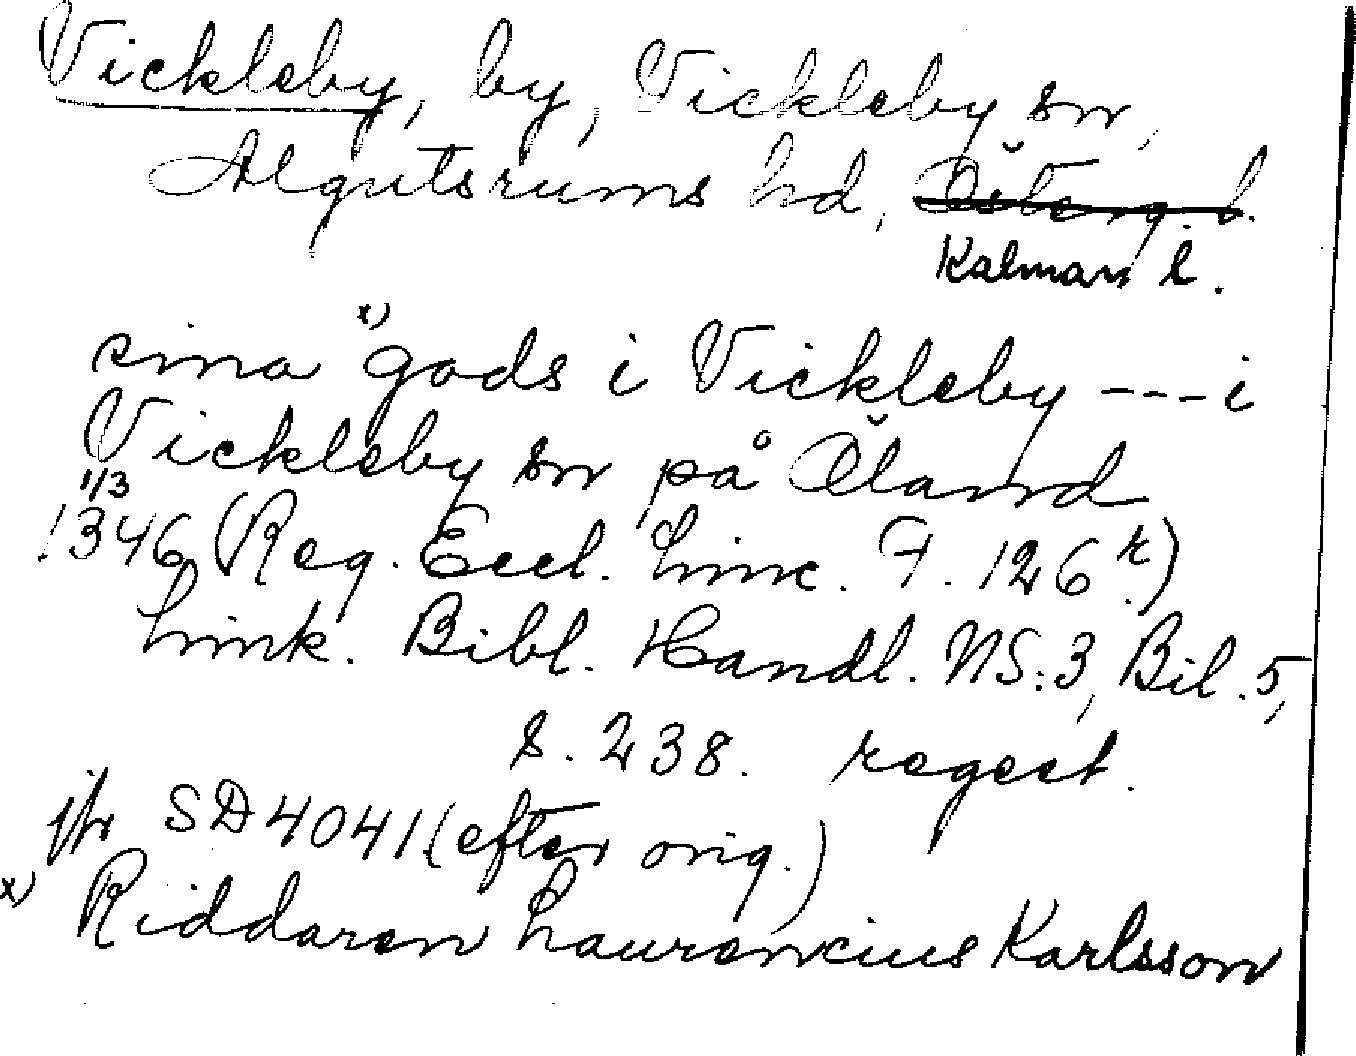 Vickleby, by, Vickleby sn,
Algutsrums hd, Österg. l.
Kalmar l.
sina x) gods i Vickleby --- i
Vickleby sn på Öland
1/3
1346 (Reg. Eccl. Linc. F. 126 r.)
Link. Bibl. Handl. NS:3, Bil. 5,
s. 238. regest.
jfr SD 4041 (efter orig.)
x) Riddaren Laurencius Karlsson